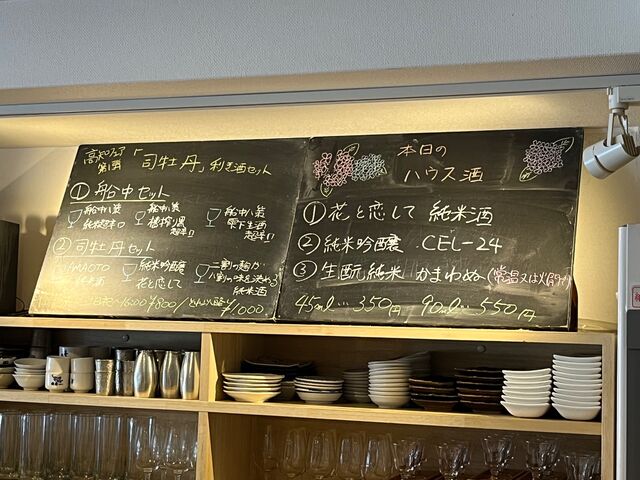 高知フェア
第1弾「司牡丹」利き酒セット
① 船中セット
船中八策 純米超辛口
船中八策 槽搾り黒 超辛口
船中八策 零下生酒 超辛口
② 司牡丹セット
AMAOTO
純米吟醸 花と恋して
二割の麹が八割の味を決める 純米酒
¥800/ ¥1000
本日の
ハウス酒
① 花と恋して 純米酒
② 純米吟醸 CEL-24
③ 生酛純米 かまわぬ(常温又は火付け)
45ml…350円 90ml…550円